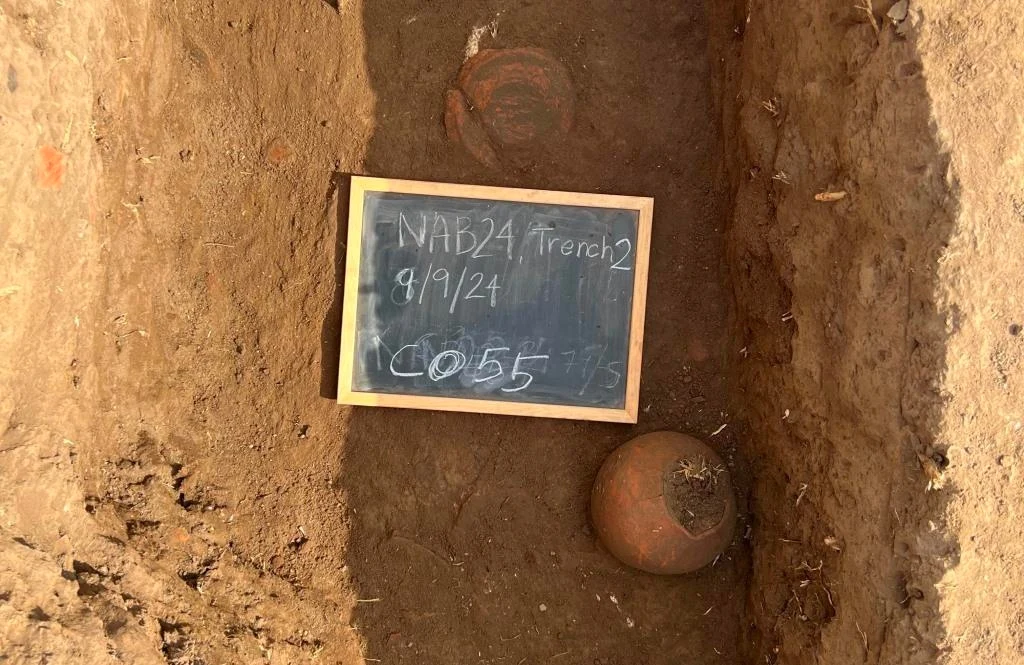 NAB24, Trench2
9/9/24
CO55